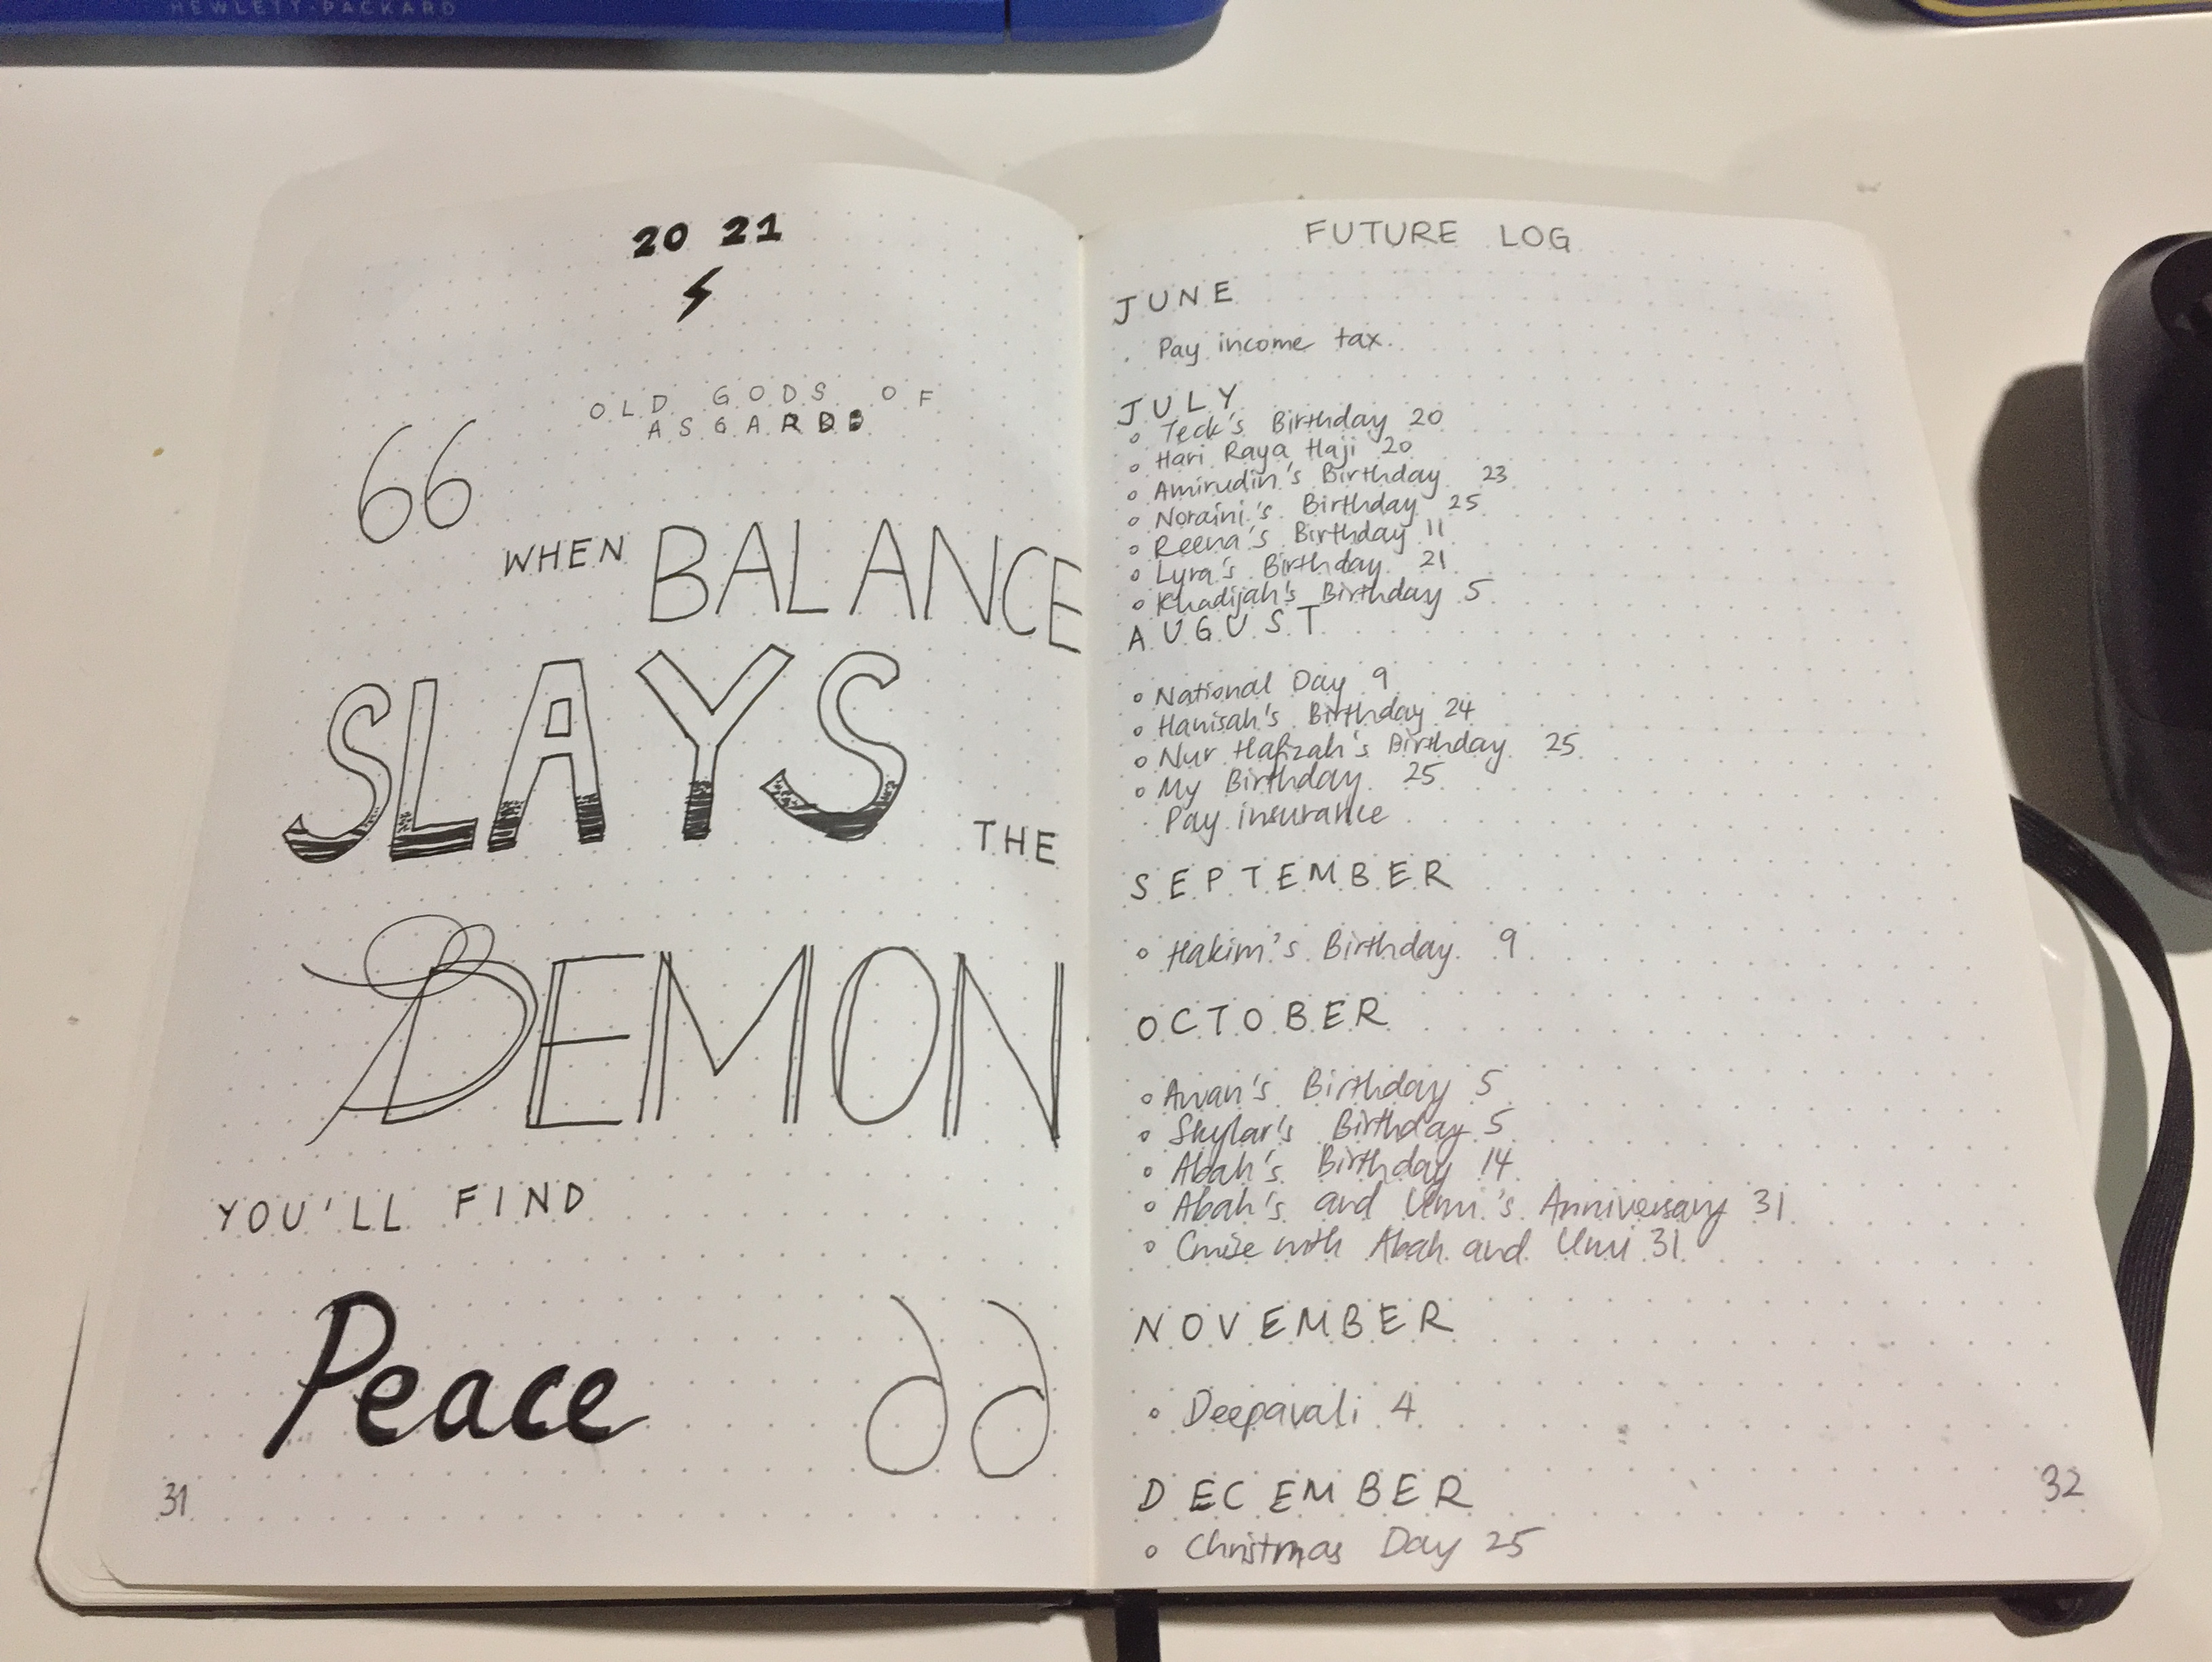 HEWLETT-PACKARD
20 21
OLD GODS OF
ASGARD
“
WHEN BALANCE
SLAYS
THE
DEMON
YOU'LL FIND
Peace
”
31
FUTURE LOG
JUNE
. Pay income tax.
JULY
o Teck's Birthday 20
o Hari Raya Haji 20
o Amirudin's Birthday 23
o Noraini's Birthday 25
o Reena's Birthday 11
o Lyra's Birthday 21
o Khadijah's Birthday 5
AUGUST
o National Day 9
o Hanisah's Birthday 24
o Nur Hafizah's Birthday 25
o My Birthday 25
. Pay insurance
SEPTEMBER
o Hakim's Birthday 9
OCTOBER
o Awan's Birthday 5
o Skylar's Birthday 5
o Abah's Birthday 14
o Abah's and Umi's Anniversary 31
o Cruise with Abah and Umi 31
NOVEMBER
o Deepavali 4
DECEMBER
o Christmas Day 25
32